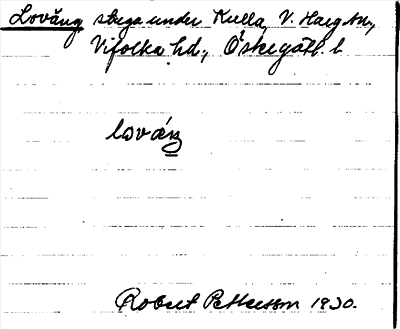 Loväng stuga under Kulla, V. Harg sn,
Vifolka hd., Östergötl. l.
loväŋ
Robert Pettersson 1930.